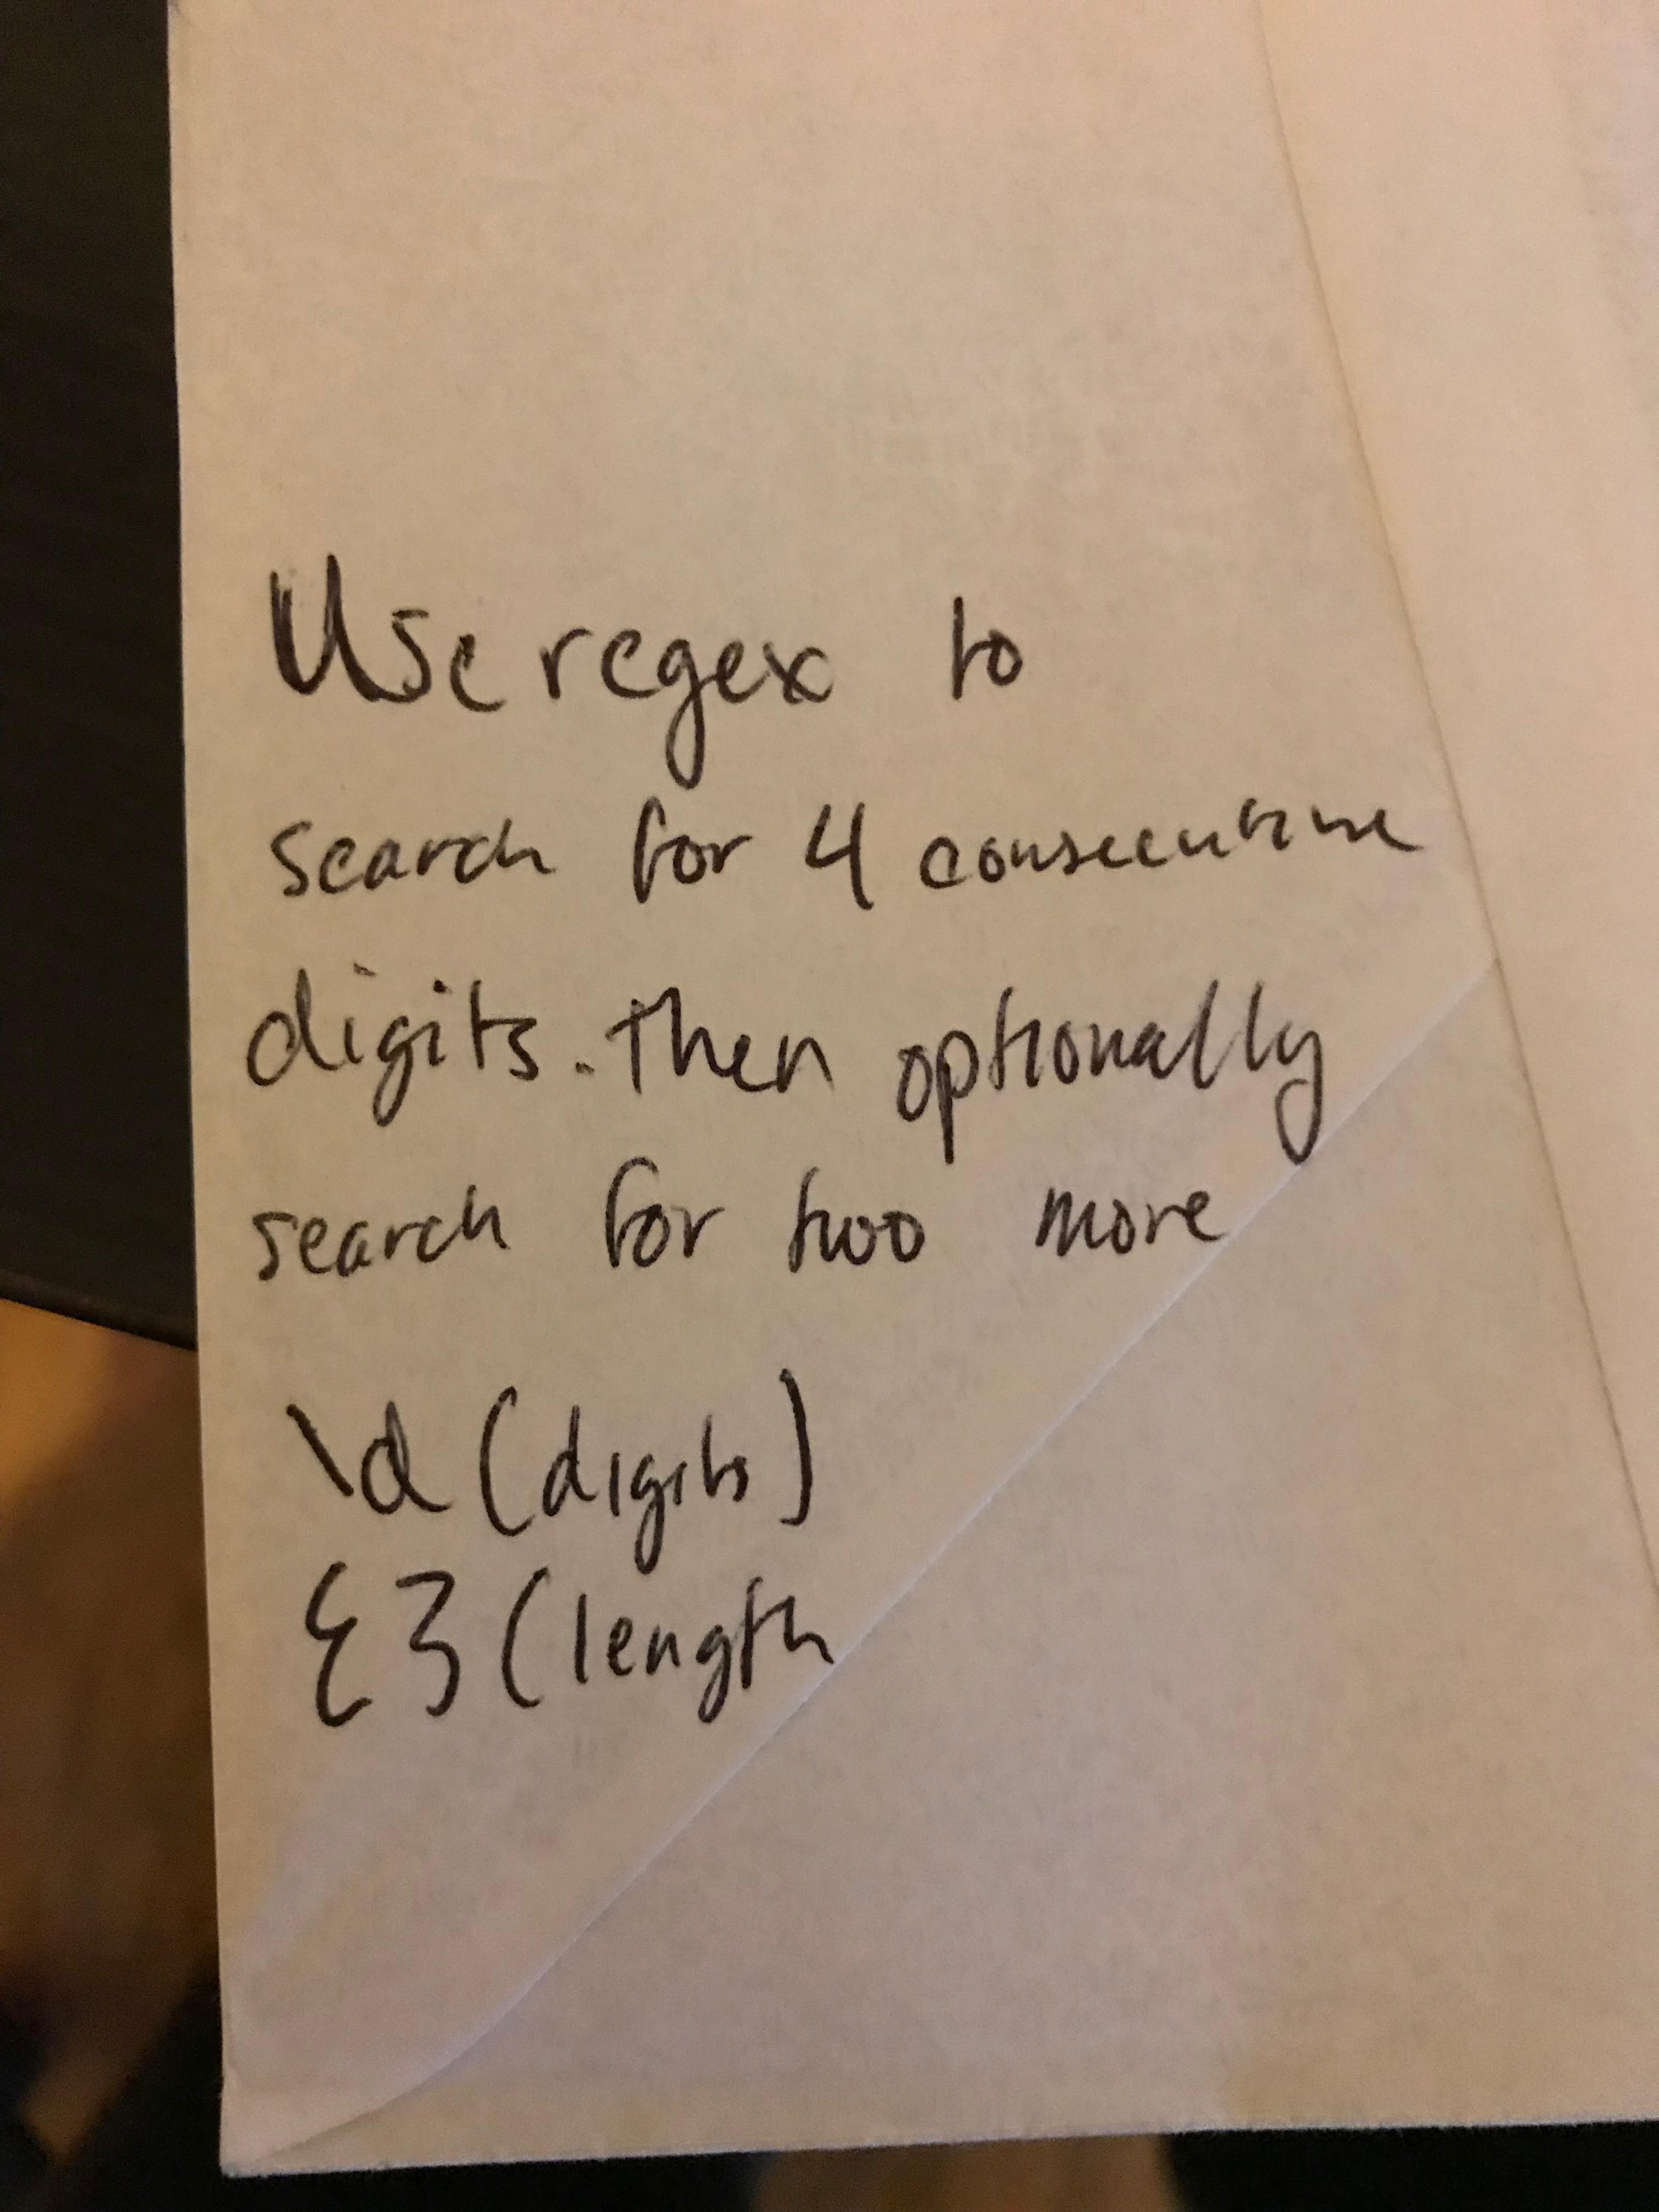 Use regex to
search for 4 consecutive
digits. then optionally
search for two more
\d (digits)
{} (length